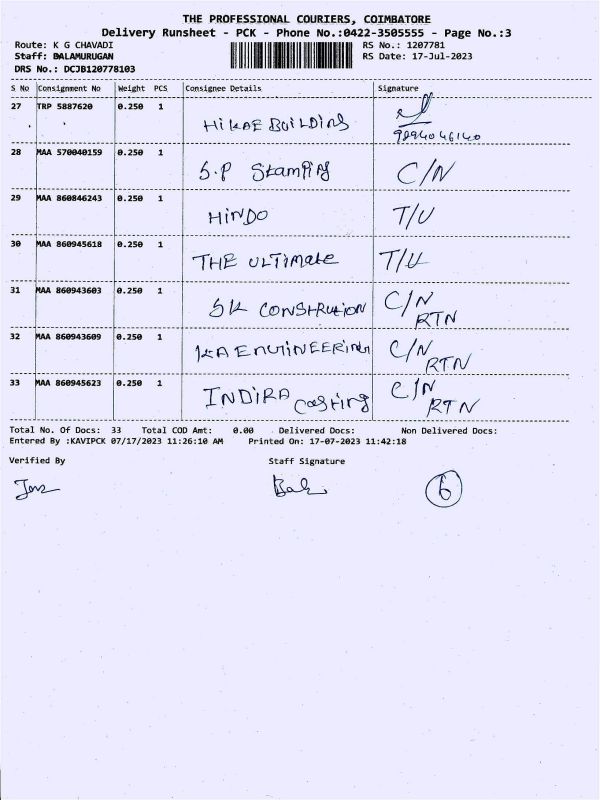 THE PROFESSIONAL COURIERS, COIMBATORE
Delivery Runsheet - PCK - Phone No.:0422-3505555 - Page No.:3
Route: K G CHAVADI RS No.: 1207781
Staff: BALAMURUGAN RS Date: 17-Jul-2023
DRS No.: DCJB120778103
S No Consignment No Weight PCS Consignee Details Signature
27 TRP 5887620 0.250 1 HiKAE BUiLDING
9894046140
28 MAA 570040159 0.250 1 S.P Stamping C/N
29 MAA 860846243 0.250 1 HINDO T/U
30 MAA 860945618 0.250 1 THE ULTimate T/U
31 MAA 860943603 0.250 1 SK CONStRUtiON C/N
RTN
32 MAA 860943609 0.250 1 KA ENGINEERING C/N
RTN
33 MAA 860945623 0.250 1 INDIRA Casting C/N
RTN
Total No. Of Docs: 33 Total COD Amt: 0.00 Delivered Docs: Non Delivered Docs:
Entered By :KAVIPCK 07/17/2023 11:26:10 AM Printed On: 17-07-2023 11:42:18
Verified By Staff Signature
6